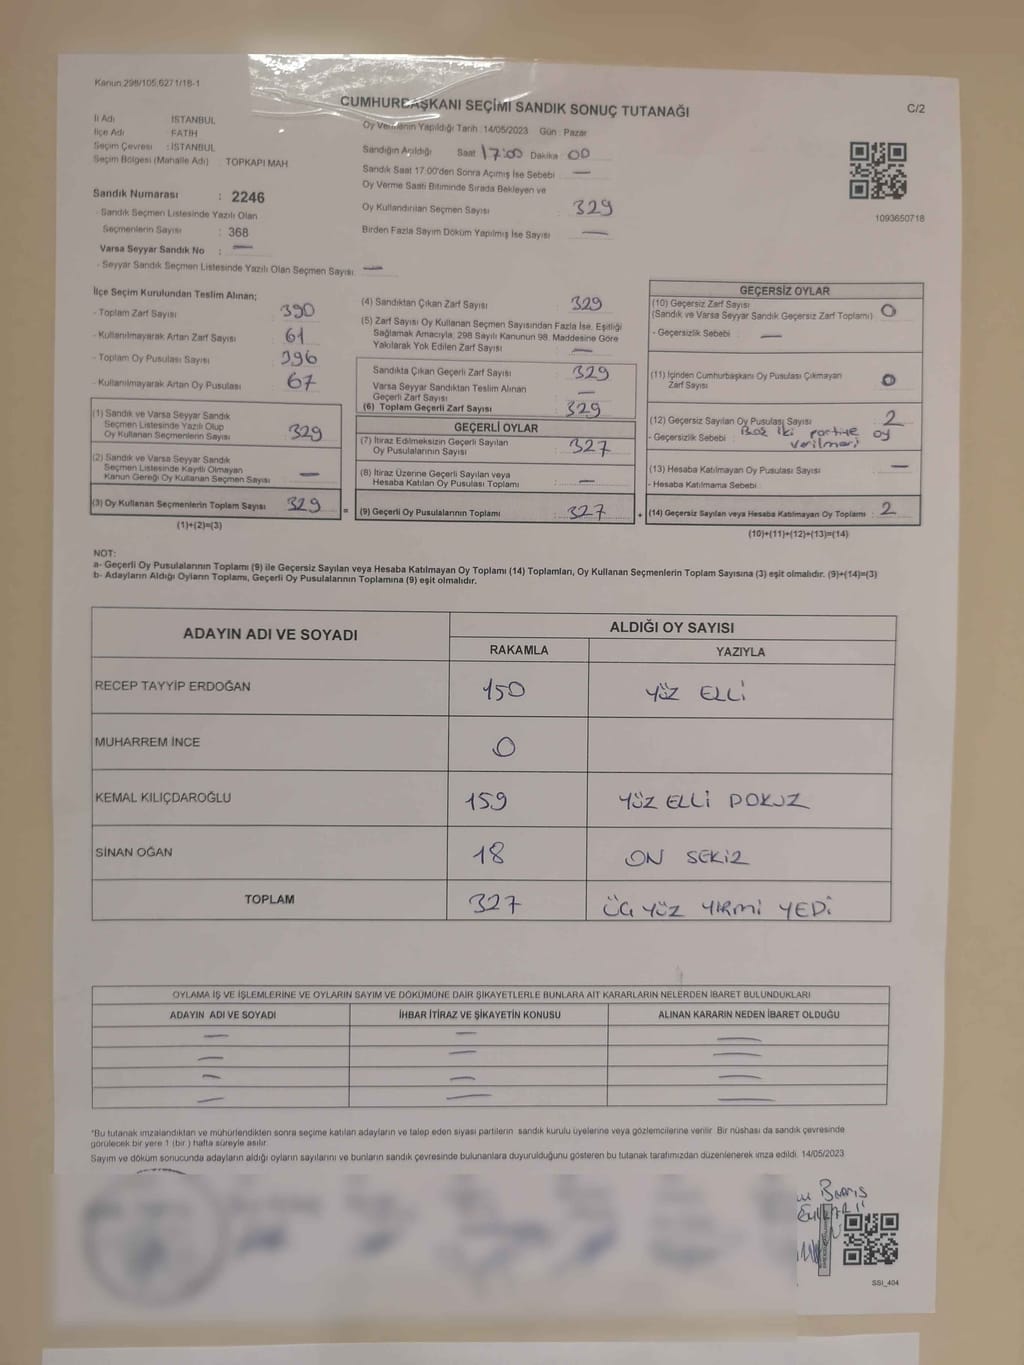 Kanun:298/105;6271/18-1
CUMHURBAŞKANI SEÇİMİ SANDIK SONUÇ TUTANAĞI
C/2
İl Adı İSTANBUL
İlçe Adı FATİH
Seçim Çevresi : İSTANBUL
Seçim Bölgesi (Mahalle Adı) : TOPKAPI MAH
Sandık Numarası : 2246
- Sandık Seçmen Listesinde Yazılı Olan
Seçmenlerin Sayısı : 368
Varsa Seyyar Sandık No : —
- Seyyar Sandık Seçmen Listesinde Yazılı Olan Seçmen Sayısı —
Oy Vermenin Yapıldığı Tarih :14/05/2023 Gün : Pazar
Sandığın Açıldığı Saat 17:00 Dakika 00
Sandık Saat 17.00'den Sonra Açımış İse Sebebi —
Oy Verme Saati Bitiminde Sırada Bekleyen ve
Oy Kullandırılan Seçmen Sayısı 329
Birden Fazla Sayım Döküm Yapılmış İse Sayısı —
1093650718
İlçe Seçim Kurulundan Teslim Alınan;
- Toplam Zarf Sayısı 390
- Kullanılmayarak Artan Zarf Sayısı 61
- Toplam Oy Pusulası Sayısı 396
- Kullanılmayarak Artan Oy Pusulası 67
(1) Sandık ve Varsa Seyyar Sandık
Seçmen Listesinde Yazılı Olup
Oy Kullanan Seçmenlerin Sayısı 329
(2) Sandık ve Varsa Seyyar Sandık
Seçmen Listesinde Kayıtlı Olmayan
Kanun Gereği Oy Kullanan Seçmen Sayısı —
(3) Oy Kullanan Seçmenlerin Toplam Sayısı 329 =
(1)+(2)=(3)
(4) Sandıktan Çıkan Zarf Sayısı 329
(5) Zarf Sayısı Oy Kullanan Seçmen Sayısından Fazla İse, Eşitliği
Sağlamak Amacıyla, 298 Sayılı Kanunun 98. Maddesine Göre
Yakılarak Yok Edilen Zarf Sayısı —
Sandıkta Çıkan Geçerli Zarf Sayısı 329
Varsa Seyyar Sandıktan Teslim Alınan
Geçerli Zarf Sayısı —
(6) Toplam Geçerli Zarf Sayısı 329
GEÇERLİ OYLAR
(7) İtiraz Edilmeksizin Geçerli Sayılan
Oy Pusulalarının Sayısı 327
(8) İtiraz Üzerine Geçerli Sayılan veya
Hesaba Katılan Oy Pusulası Toplamı —
(9) Geçerli Oy Pusulalarının Toplamı : 327 +
GEÇERSİZ OYLAR
(10) Geçersiz Zarf Sayısı
(Sandık ve Varsa Seyyar Sandık Geçersiz Zarf Toplamı) 0
- Geçersizlik Sebebi : —
(11) İçinden Cumhurbaşkanı Oy Pusulası Çıkmayan
Zarf Sayısı 0
(12) Geçersiz Sayılan Oy Pusulası Sayısı 2
- Geçersizlik Sebebi : iki partiye oy
verilmesi
(13) Hesaba Katılmayan Oy Pusulası Sayısı —
- Hesaba Katılmama Sebebi
(14) Geçersiz Sayılan veya Hesaba Katılmayan Oy Toplamı : 2
(10)+(11)+(12)+(13)=(14)
NOT:
a- Geçerli Oy Pusulalarının Toplamı (9) ile Geçersiz Sayılan veya Hesaba Katılmayan Oy Toplamı (14) Toplamları, Oy Kullanan Seçmenlerin Toplam Sayısına (3) eşit olmalıdır. (9)+(14)=(3)
b- Adayların Aldığı Oyların Toplamı, Geçerli Oy Pusulalarının Toplamına (9) eşit olmalıdır.
ADAYIN ADI VE SOYADI
ALDIĞI OY SAYISI
RAKAMLA YAZIYLA
RECEP TAYYİP ERDOĞAN 150 YÜZ ELLİ
MUHARREM İNCE 0
KEMAL KILIÇDAROĞLU 159 YÜZ ELLİ DOKUZ
SİNAN OĞAN 18 ON SEKİZ
TOPLAM 327 ÜÇ YÜZ YİRMİ YEDİ
OYLAMA İŞ VE İŞLEMLERİNE VE OYLARIN SAYIM VE DÖKÜMÜNE DAİR ŞİKAYETLERLE BUNLARA AİT KARARLARIN NELERDEN İBARET BULUNDUKLARI
ADAYIN ADI VE SOYADI İHBAR İTİRAZ VE ŞİKAYETİN KONUSU ALINAN KARARIN NEDEN İBARET OLDUĞU
— — —
— — —
— — —
— — —
*Bu tutanak imzalandıktan ve mühürlendikten sonra seçime katılan adayların ve talep eden siyasi partilerin sandık kurulu üyelerine veya gözlemcilerine verilir. Bir nüshası da sandık çevresinde
görülecek bir yere 1 (bir ) hafta süreyle asılır.
Sayım ve döküm sonucunda adayların aldığı oyların sayılarını ve bunların sandık çevresinde bulunanlara duyurulduğunu gösteren bu tutanak tarafımızdan düzenlenerek imza edildi. 14/05/2023
SSI_404